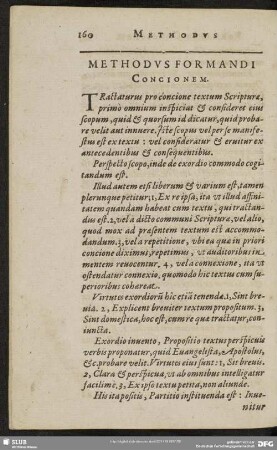 160 METHODVS
METHODVS FORMANDI
CONCIONEM.
TRactaturus pro concione textum Scripturæ,
primò omnium inspiciat & consideret eius
scopum, quid & quorsum id dicatur, quid proba-
re velit aut innuere. siste scopus vel per se manife-
stus est ex textu: vel consideratur & eruitur ex
antecedentibus & consequentibus.
Perspecto scopo, inde de exordio commodè cogi-
tandum est.
Illud autem etsi liberum & varium est, tamen
plerunque petitur, 1, Ex re ipsa, ita vt illud affini-
tatem quandam habeat cum textu, qui tractan-
dus est. 2, vel à dicto communi Scripturæ, vel alio,
quod mox ad præsentem textum est accommo-
dandum. 3, vel à repetitione, vbi ea quæ in priori
concione diximus, repetimus, vt auditoribus in
mentem reuocentur, 4, vel à connexione, ita vt
ostendatur connexio, quomodo hic textus cum su-
perioribus cohæreat.
Virtutes exordiorũ hîc etiã tenendæ. 1, Sint bre-
uia. 2, Explicent breuiter textum propositum. 3,
Sint domestica, hoc est, cum re quæ tractatur, con-
iuncta.
Exordio inuento, Propositio textus perspicuis
verbis proponatur, quid Euangelista, Apostolus,
&c. probare velit. Virtutes eius sunt: 1, Sit breuis.
2, Clara & perspicua, vt ab omnibus intelligatur
facilimè. 3, Ex ipso textu petita, non aliunde.
His ita positis, Partitio instituenda est: Inue-
nitur
SLUB